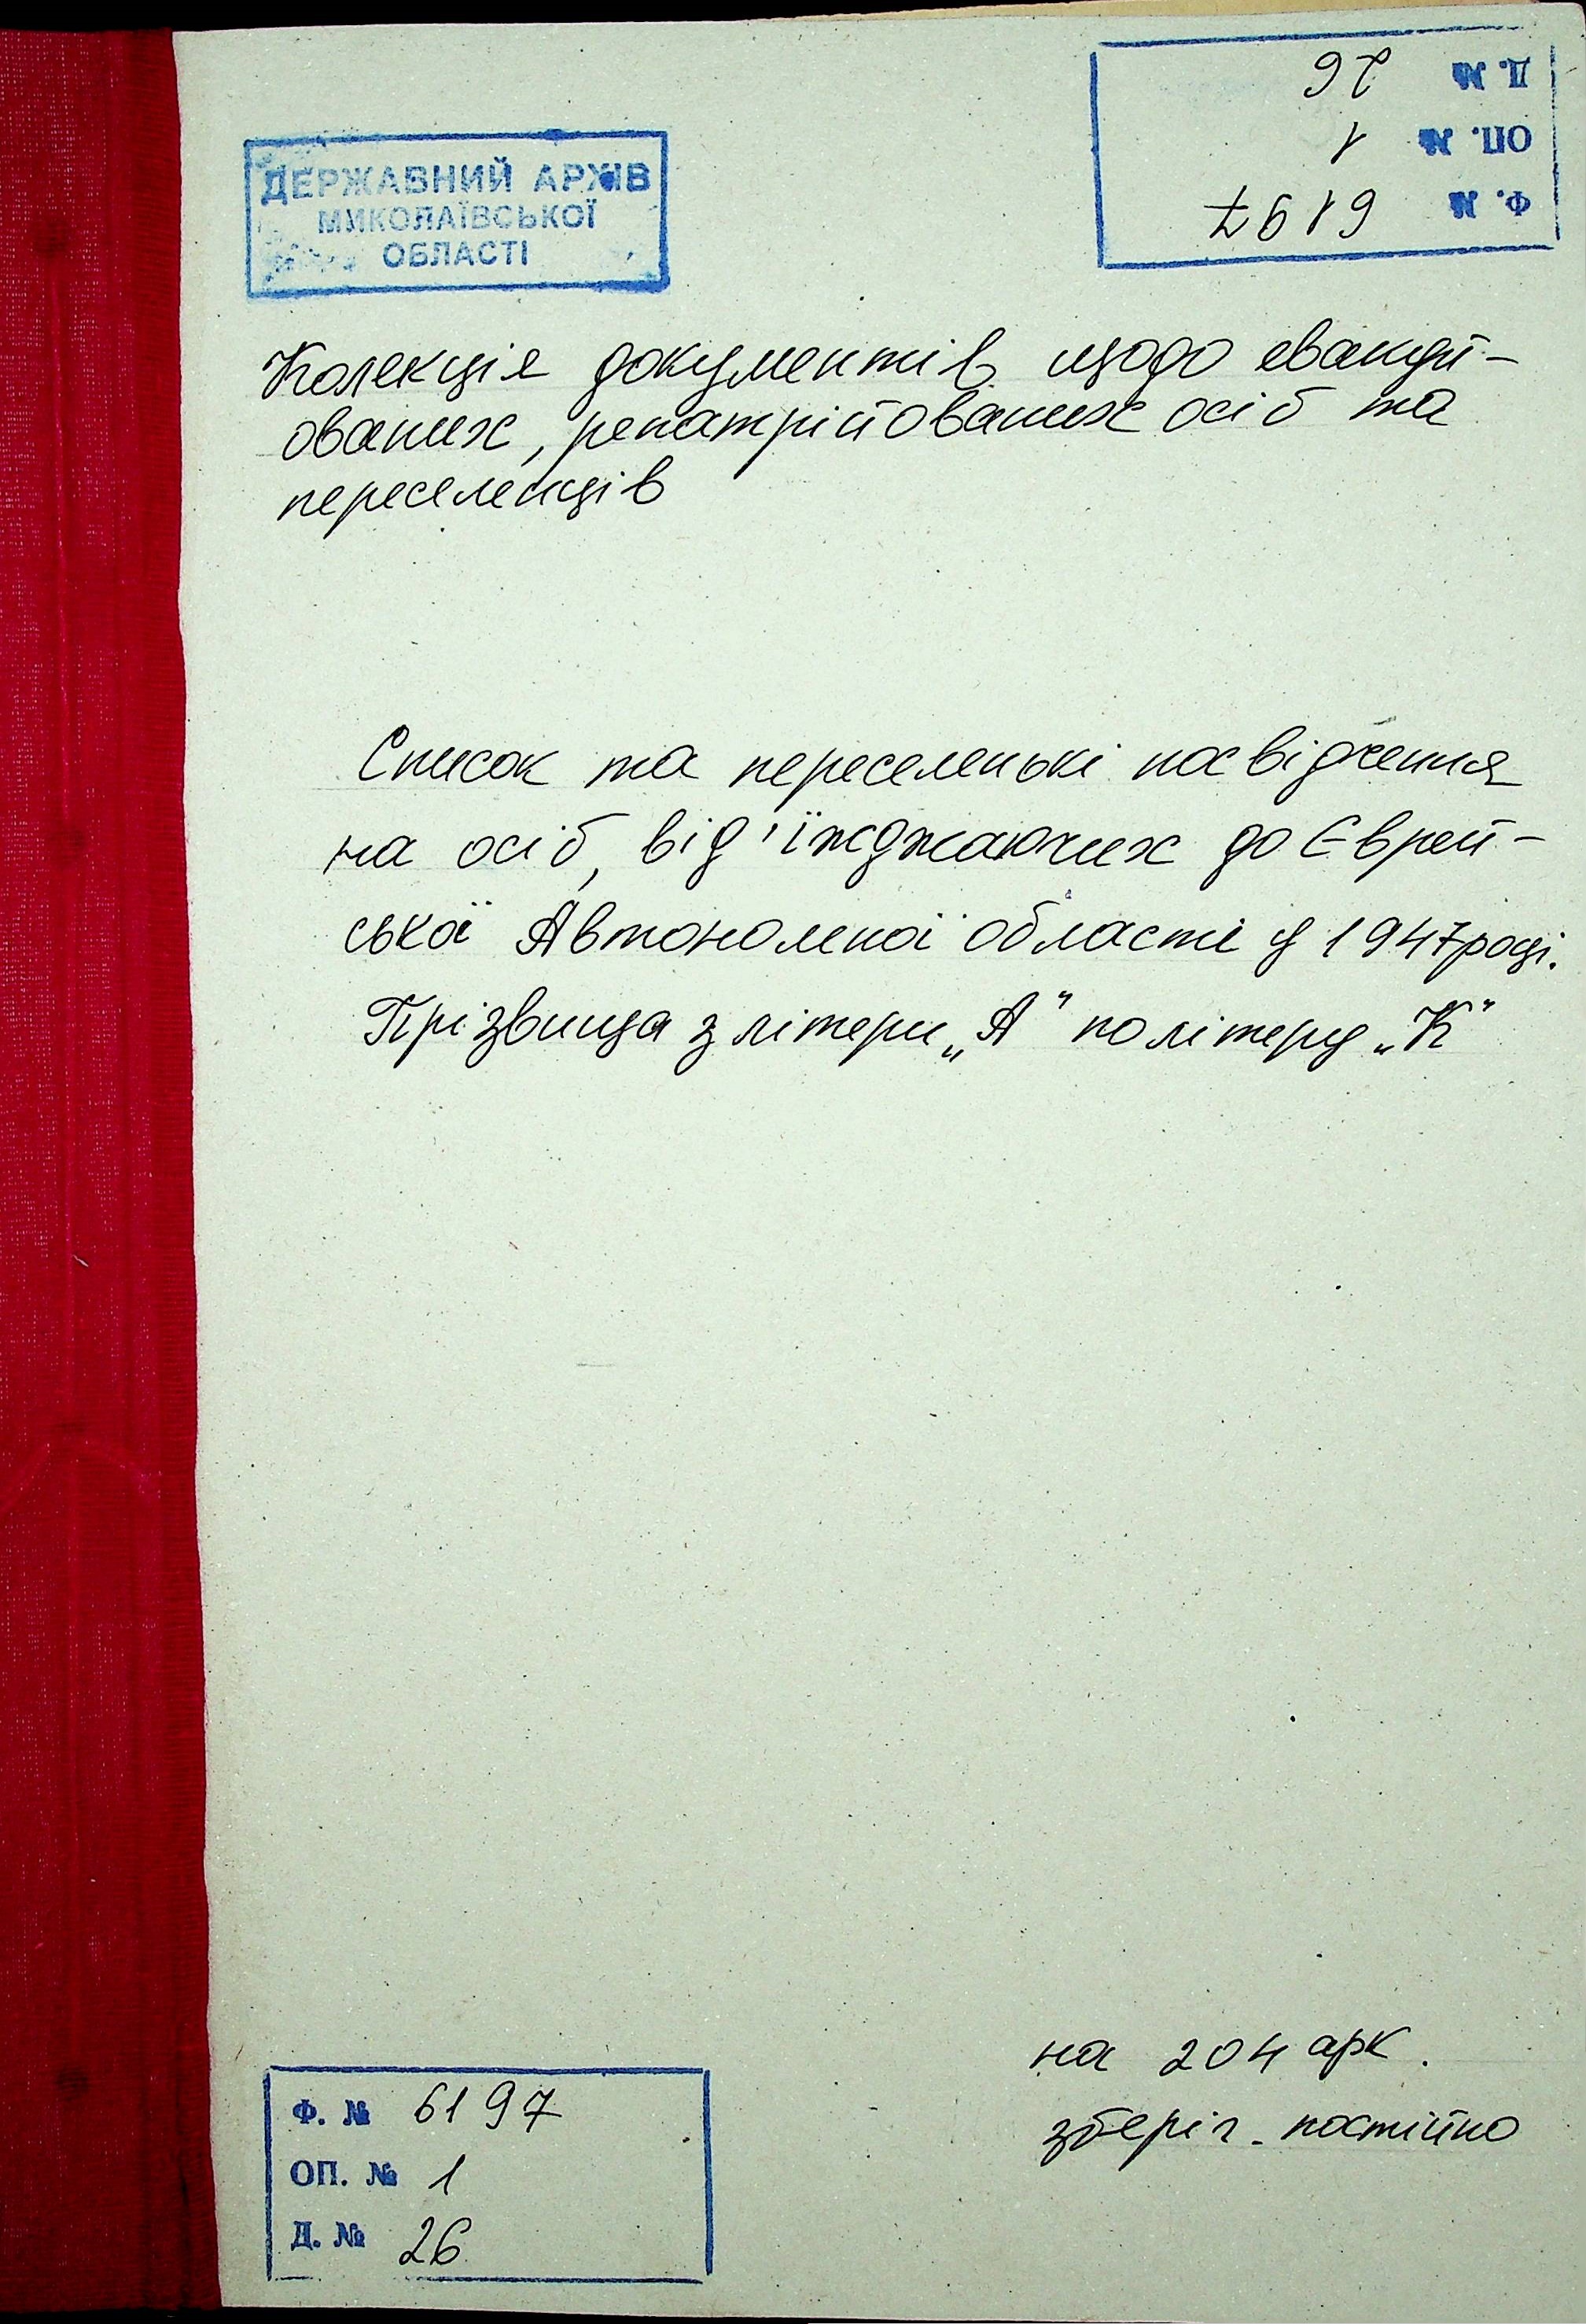 Д. № 26
ОП. № 1
Ф. № 6197
ДЕРЖАВНИЙ АРХІВ
МИКОЛАЇВСЬКОЇ
ОБЛАСТІ
Колекція документів щодо евакуй-
ованих, репатрійованих осіб та
переселенців
Список та переселенькі посвідчення
на осіб, від'їжджаючих до Єврей-
ської Автономної області у 1947 році.
Прізвища з літери „А" по літеру „К"
на 204 арк.
зберіг. постійно
Ф. № 6197
ОП. № 1
Д. № 26